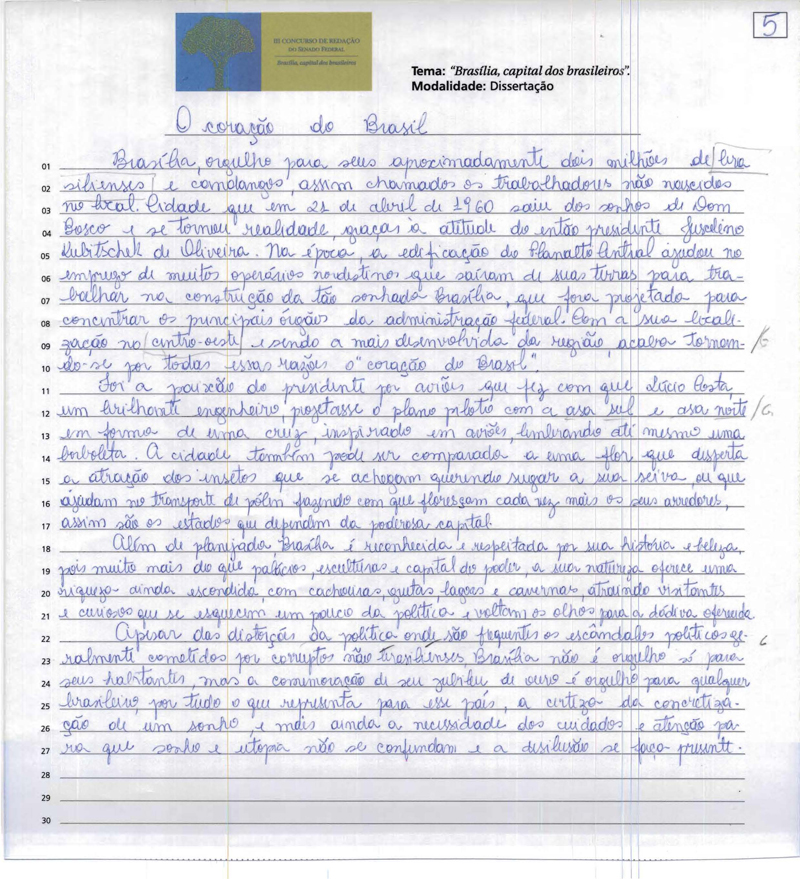 5
III CONCURSO DE REDAÇÃO
DO SENADO FEDERAL
Brasília, capital dos brasileiros
Tema: "Brasília, capital dos brasileiros".
Modalidade: Dissertação
O coração do Brasil
01 Brasília, orgulho para seus aproximadamente dois milhões de bra
02 silienses e candangos, assim chamados os trabalhadores não nascidos
03 no local. Cidade que em 21 de abril de 1960 saiu dos sonhos de Dom
04 Bosco e se tornou realidade, graças à atitude do então presidente Juscelino
05 Kubitschek de Oliveira. Na época, a edificação do Planalto Central ajudou no
06 emprego de muitos operários nordestinos que saíram de suas terras para tra-
07 balhar na construção da tão sonhada Brasília, que fora projetada para
08 concentrar os principais órgãos da administração federal. Com a sua locali-
09 zação no centro-oeste e sendo a mais desenvolvida da região, acaba tornan-
10 do-se por todas essas razões o "coração do Brasil".
11 Foi a paixão do presidente por aviões que fez com que Lúcio Costa,
12 um brilhante engenheiro, projetasse o plano piloto com a asa sul e asa norte
13 em forma de uma cruz, inspirado em aviões, lembrando até mesmo uma
14 borboleta. A cidade também pode ser comparada a uma flor que desperta
15 a atração dos insetos que se achegam querendo sugar a sua seiva, ou que
16 ajudam no transporte de pólen fazendo com que floresçam cada vez mais os seus arredores,
17 assim são os estados que dependem da poderosa capital.
18 Além de planejada, Brasília é reconhecida e respeitada por sua história e beleza,
19 pois muito mais do que palácios, esculturas e capital do poder, a sua natureza oferece uma
20 riqueza ainda escondida, com cachoeiras, grutas, lagoas e cavernas, atraindo visitantes
21 e curiosos que se esquecem um pouco da política e voltam os olhos para a dádiva oferecida.
22 Apesar das distorções da política onde são frequentes os escândalos políticos ge-
23 ralmente cometidos por corruptos não brasilienses, Brasília não é orgulho só para
24 seus habitantes, mas a comemoração de seu jubileu de ouro é orgulho para qualquer
25 brasileiro, por tudo o que representa para esse país, a certeza da concretiza-
26 ção de um sonho, e mais ainda a necessidade dos cuidados e atenção pa-
27 ra que sonho e utopia não se confundam e a desilusão se faça presente.
28
29
30